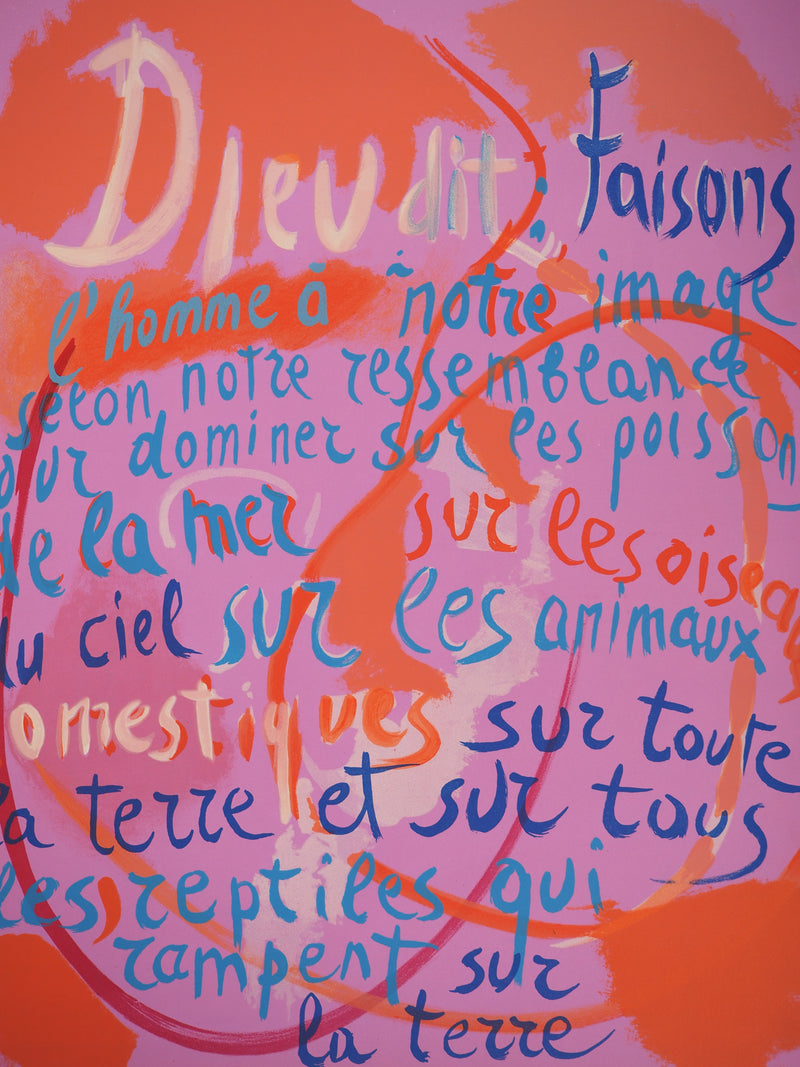 Dieu dit Faisons
l'homme à notre image
selon notre ressemblance
our dominer sur les poisson
de la mer sur les oiseau
du ciel sur les animaux
omestiques sur toute
la terre et sur tous
les reptiles qui
rampent sur
la terre